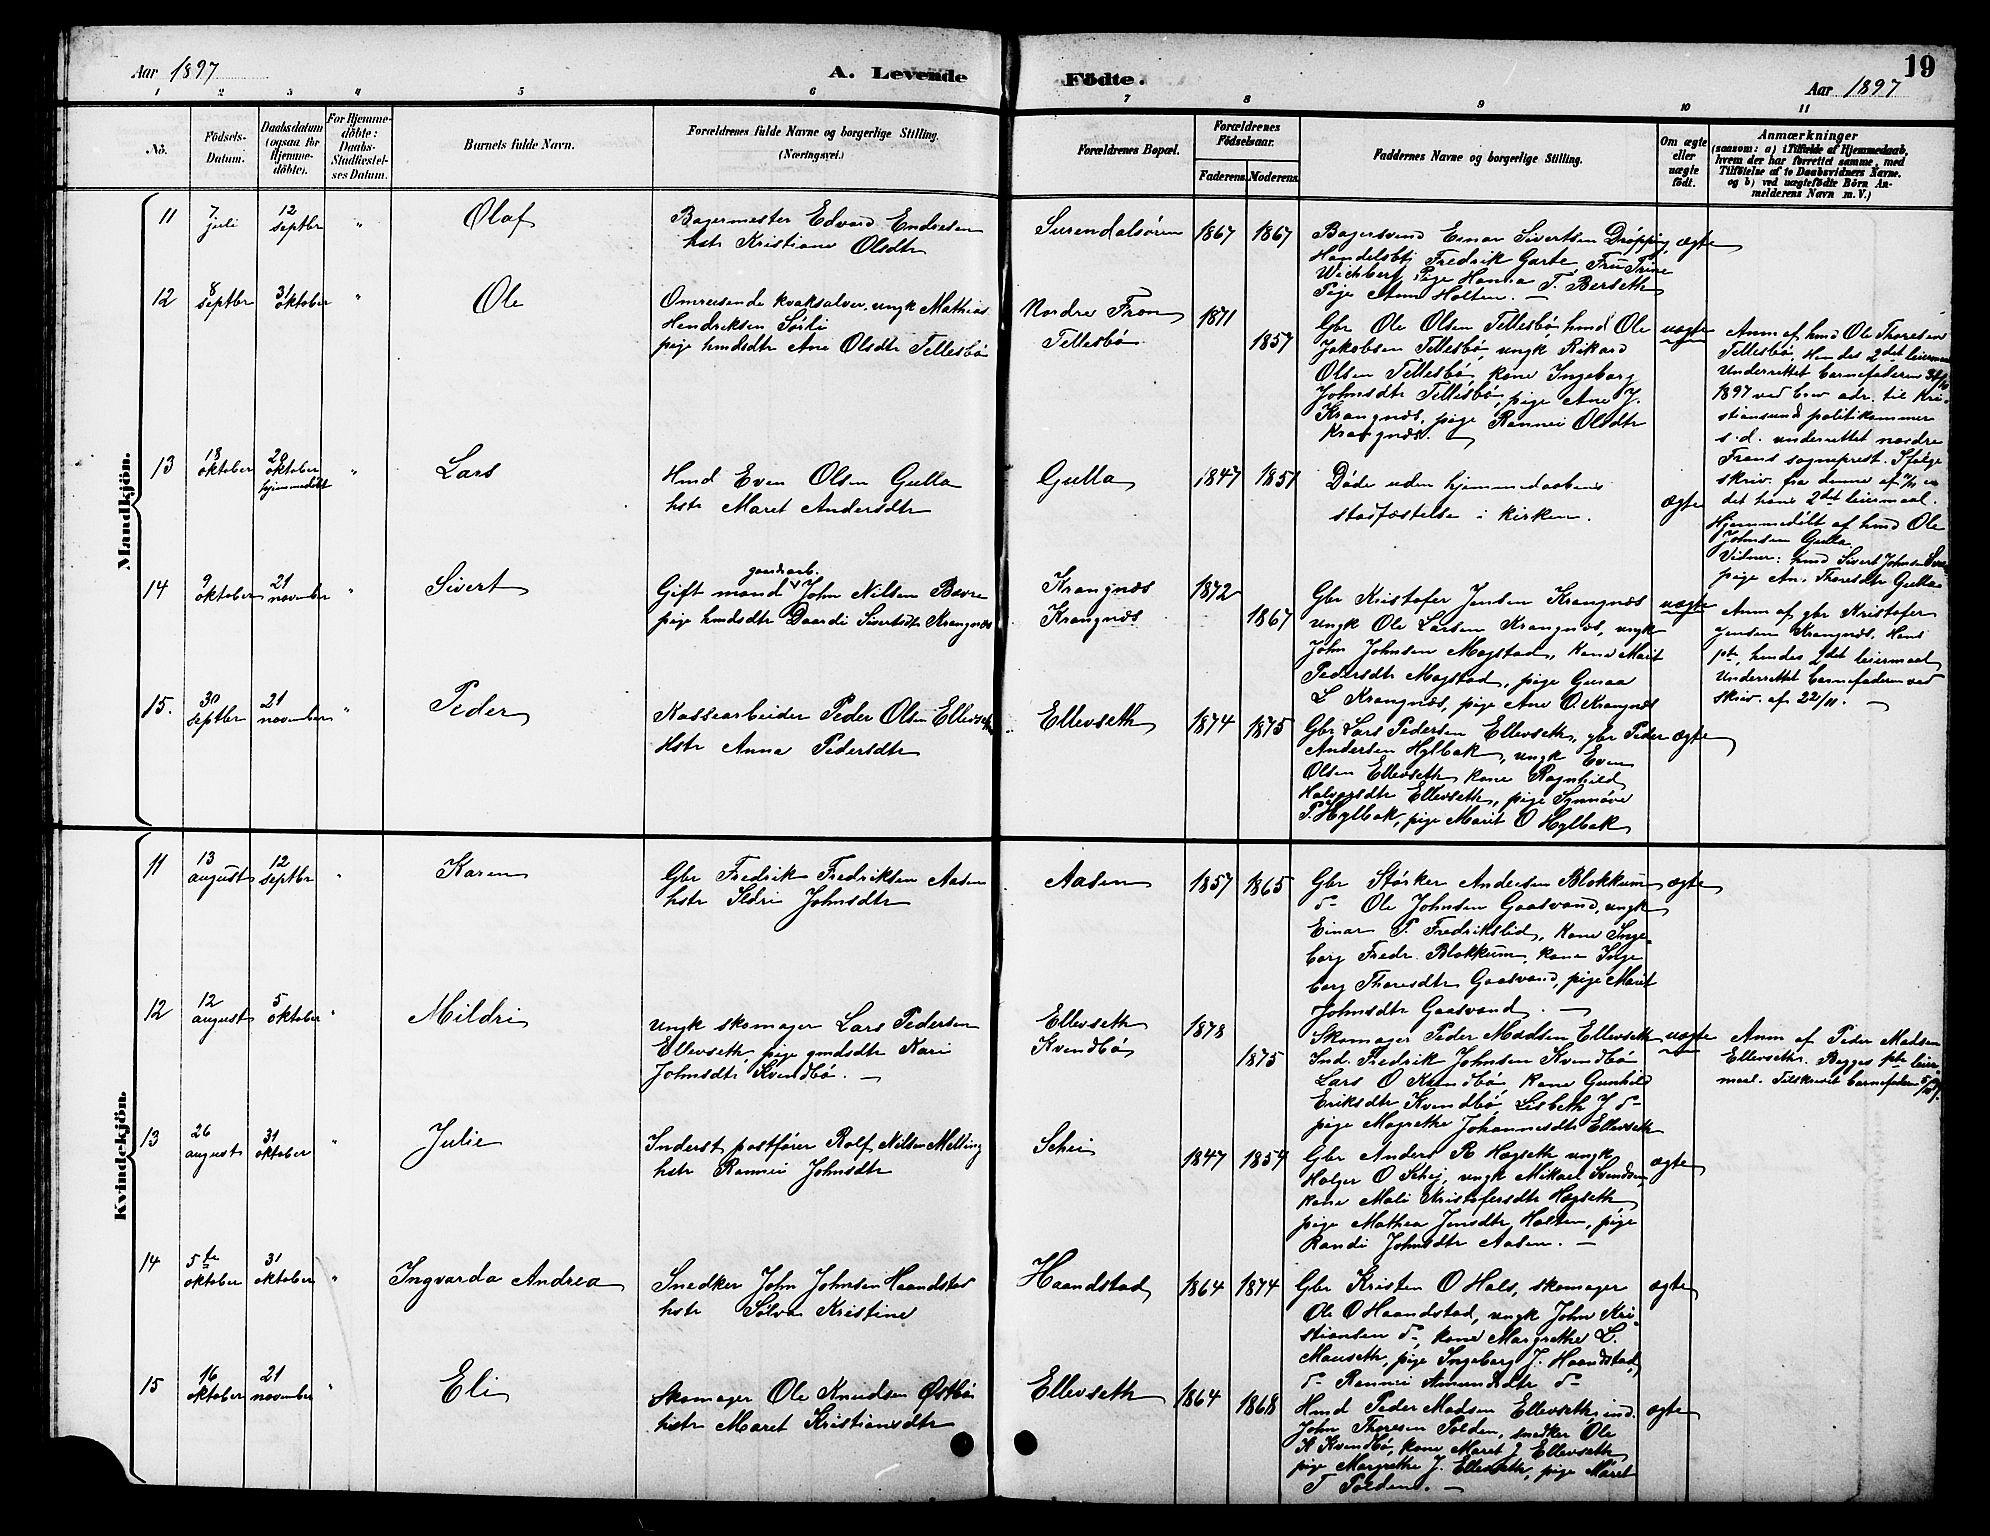 Aar 1897
A. Levende
Födte.
19
Aar 1897
1 2 3 4 5 6 7 8 9 10 11
No.
Födsels-
Datum.
Daabsdatum
(ogsaa for
Hjemme-
döbte).
For Hjemme-
döbte:
Daabs-
Stadfæstel-
ses Datum.
Barnets fulde Navn.
Forældrenes fulde Navne og borgerlige Stilling.
(Næringsvei.)
Forældrenes Bopæl.
Forældrenes
Födselsaar.
Faderens.
Moderens.
Faddernes Navne og borgerlige Stilling.
Om ægte
eller
uægte
födt.
Anmærkninger
(saasom: a) i Tilfælde af Hjemmedaab,
hvem der har forrettet samme, med
Tilföielse af to Daabsvidners Navne.
og b) ved uægtefödte Börn An-
melderens Navn m. V.)
Mandkjön.
11
7
juli
12
septbr
"
Olaf
Bagermester Edvard Endresen
hstr Kristiane Olsdtr
Surendalsören
1867
1867
Bagersvend Einar Sivertsen Dröpping,
Handelsbtj Fredrik Garte, Fru Trine
Wichbert, Pige Hanna T. Berseth
Pige Ann Holten.
ægte
12
8
septbr
31
oktober
"
Ole
Omreisende kvaksalver, ungk Mathias
Hendriksen Sörli
pige hmdsdtr Ane Olsdtr Tellesbö
Nordre Fron
Tellesbö
1871
1857
Gbr Ole Olsen Tellesbö, hmd Ole
Jakobsen Tellesbö, ungk Rikard
Olsen Tellesbö, kone Ingeborg
Johnsdtr Tellesbö, pige Ane J.
Krangnæs, pige Rannei Olsdtr
Krangnæs.
uægte
Anm af hmd Ole Thoresen
Tellesbö, Hendes 2det leiermaal
Underrettet barnefaderen
1897 ved brev adr. til Kri-
stiansund politikammer
s.d. underrettet nordre
Frons sogneprest. Ifölge
skriv. fra denne af
det hans 2det leiermaal.
13
18
oktober
20
oktober
hjemmedöbt
"
Lars
Hmd Even Olsen Gulla
hstr Maret Andersdtr
Gulla
1847
1851
Döde uden hjemmedaabens
stadfæstelse i kirken.
ægte
Hjemmedöbt af hmd Ole
Johnsen Gulla.
Vidner: hmd Sivert Johnsen
pige An. Thoresdtr Gulla
14
9
oktober
21
november
"
Sivert
gaardarb.
Gift mand John Nilsen Bævre
pige hmdsdtr Daardi Sivertsdtr Krangnæs
Krangnæs
Krangnæs
1872
1867
Gbr Kristofer Jensen Krangnæs
ungk Ole Larsen Krangnæs, ungk
John Johnsen Mogstad, kone Marit
Pedersdtr Mogstad, pige Guraa
L Krangnæs, pige Ane O. Krangnæs
uægte
Anm af gbr Kristofer
Jensen Krangnæs. Hans
1ste, hendes 2det leiermaal
Underrettet barnefaderen ved
skriv. af 22/11.
15.
30
septbr
21
november
"
Peder
Kassearbeider Peder Olsen Ellevseth
Hstr Anna Pedersdtr
Ellevseth
1874
1875
Gbr Lars Pedersen Ellevseth, gbr Peder
Andersen Hylbak, ungk Even
Olsen Ellevseth kone Ragnhild
Halvorsdtr Ellevseth, pige Synnöve
P. Hylbak, pige Marit O Hylbak
ægte
Kvindekjön.
11
13
august
12
septbr
"
Karen
Gbr Fredrik Fredriksen Aasen
hstr Sldri Johnsdtr
Aasen
1857
1865
Gbr Störker Andersen Blokkum
do Ole Johnsen Gaasvand, ungk
Einar P. Fredrikslid, kone Inge-
borg Fredr. Blokkum, kone Inge
borg Thoresdtr Gaasvand, pige Marit
Johnsdtr Gaasvand.
ægte
12
12
august
5
oktober
"
Mildri
ungk skomager Lars Pedersen
Ellevseth, pige gmdsdtr Kari
Johnsdtr Kvendbö.
Ellevseth
Kvendbö
1878
1875
Skomager Peder Madsen Ellevseth
Ind. Fredrik Johnsen Kvendbö
Lars O Kvendbö, kone Gunhild
Eriksdtr Kvendbö, Lisbeth J do
pige Magrethe Johannesdtr Ellevseth
uægte
Anm af Peder Madsen
Ellevseth. Begges 1ste leier-
maal. Tilskrevet barnefaderen
13
26
august
31
oktober
"
Julie
Inderst postförer Rolf Nilsen Melling
hstr Rannei Johnsdtr
Schei
1847
1854
Gbr Anders R Hægseth ungk
Holger O Skej, ungk Mikael Svendsen,
kone Mali Kristofersdtr Hægseth
pige Mathea Jensdtr Holten, pige
Randi Johnsdtr Aasen.
ægte
14
5te
oktober
31
oktober
"
Ingvarda Andrea
Snedker John Johnsen Haandstad
hstr Solva Kristine
Haandstad
1864
1874
Gbr Kristen O Hals, skomager
Ole O Haandstad, ungk John Kri-
stiansen do, kone Margrethe L.
Mauseth, pige Ingeborg J. Haandstad,
do Rannei Amundsdtr do
ægte
15
16
oktober
21
november
"
Eli
Skomager Ole Knudsen Östbö
hstr Maret Kristiansdtr
Ellevseth
1864
1868
Hmd Peder Madsen Ellevseth, ind.
John Thoresen Polden, snedker Ole
K Kvendbö, kone Maret J Ellevseth
pige Margrethe J. Ellevseth, pige Maret
T Polden.
ægte